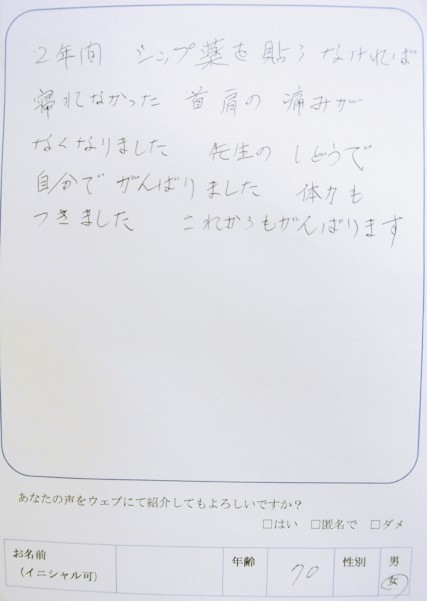 2年間 シップ薬を貼らなければ
寝れなかった 首肩の 痛みが
なくなりました 先生の しどうで
自分で がんばりました 体力も
つきました これからもがんばります
あなたの声をウェブにて紹介してもよろしいですか?
□はい □匿名で □ダメ
お名前 年齢 70 性別 男
(イニシャル可) 女